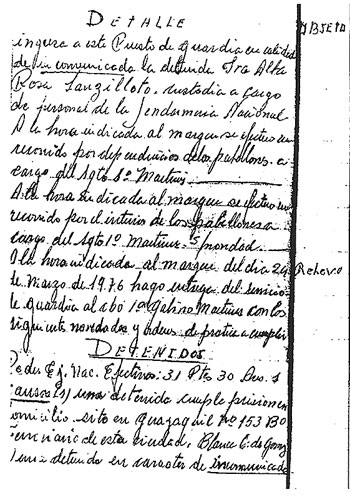 DETALLE
ingresa a este Puesto de guardia en calidad
de incomunicada la detenida Sra Alba
Rosa Lanzilloto. custodia a cargo
de personal de la Gendarmeria Nacional
A la hora indicada al margen se efectuo un
recorrido por dependencias de los pabellones. a
cargo del Sgto 1º Martinez.
A la hora indicada al margen se efectuo un
recorrido por el interior de los pabellones a
cargo del Sgto 1º Martinez. S/novedad.
A la hora indicada al margen del dia 29 Relevo
de Marzo de 1976 hago entrega del servicio
de guardia al cabo 1º Martinez con las
siguiente novedades y ordenes de practica a cumplir
DETENIDOS
Nac. Efectivos: 31 Pts 30
Causas (s) una detenida cumple prision en
domicilio sito en Guayaquil Nº 153 Bº
Ferroviario de esta ciudad, Blanca C. de
una detenida en caracter de incomunicada